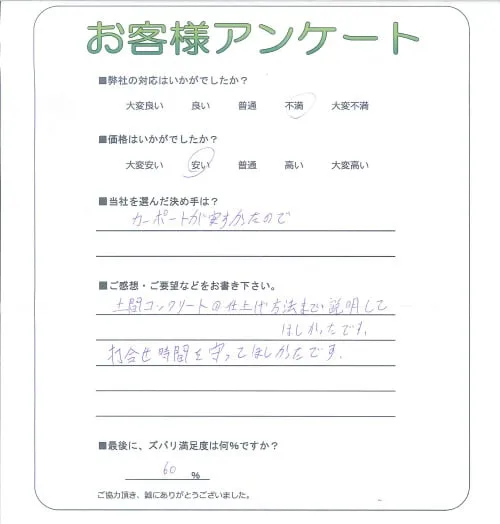 お客様アンケート
■弊社の対応はいかがでしたか？
大変良い 良い 普通 不満 大変不満
■価格はいかがでしたか？
大変安い 安い 普通 高い 大変高い
■当社を選んだ決め手は？
カーポートが安すかたので
■ご感想・ご要望などをお書き下さい。
土間コンクリートの仕上げ方法まで説明して
ほしかったです。
打合せ時間を守ってほしかたです。
■最後に、ズバリ満足度は何%ですか？
60 %
ご協力頂き、誠にありがとうございました。